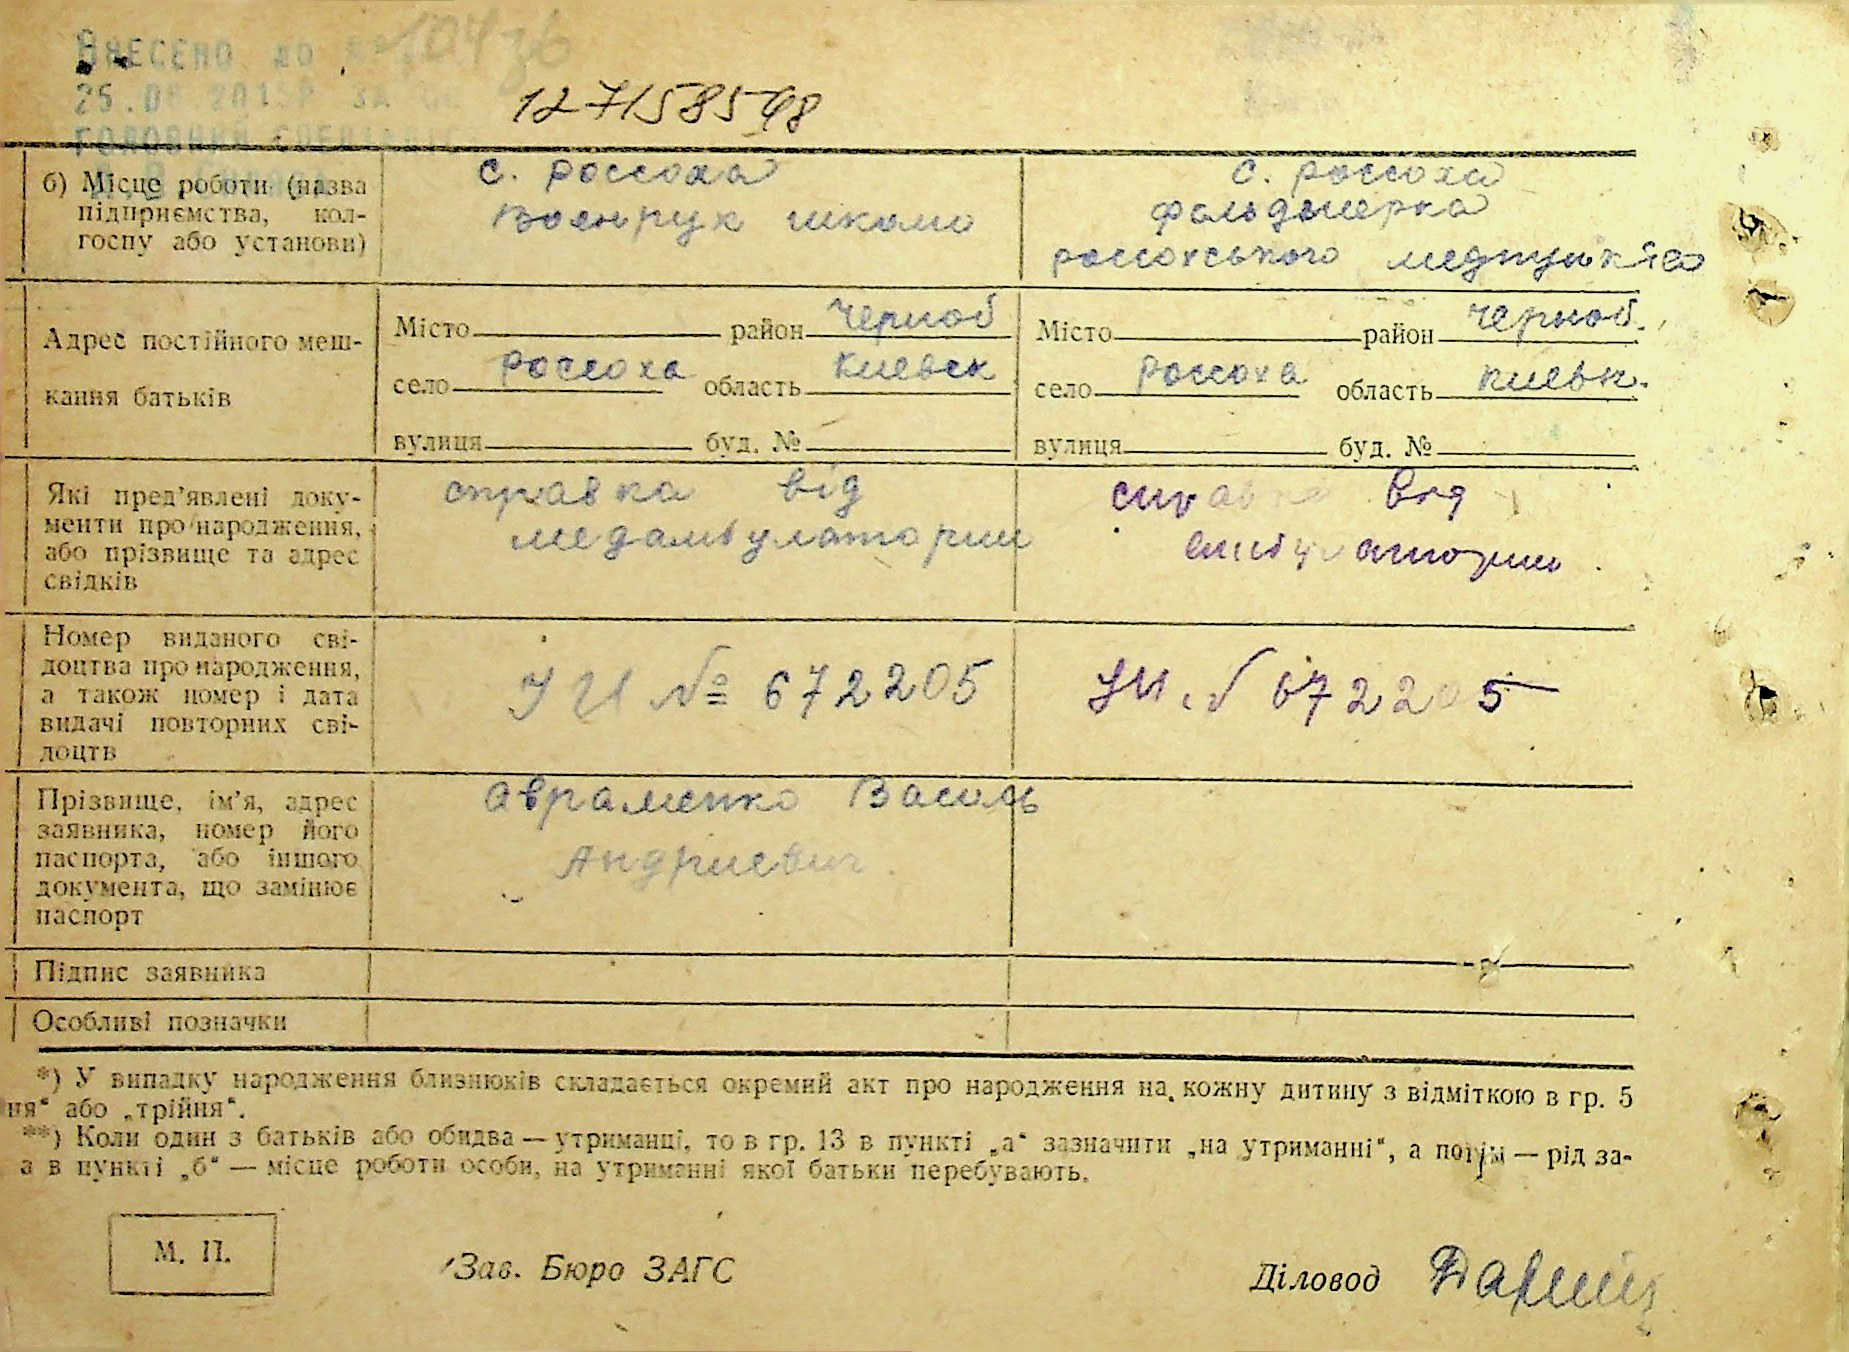 Внесено до
25.0 .201 р за
Головний спеціаліст
12 7158598
б) Місце роботи (назва підприємства, кол-госпу або установи)
с. россоха
Воєнрук школи
с. россоха
фальдшерка
россохського медпункта
Адрес постійного меш-
кання батьків
Місто район Черноб
село Россоха область Киевск
вулиця буд. №
Місто район Черноб.
село Россоха область Киевк.
вулиця буд. №
Які пред'явлені доку-
менти про народження,
або прізвище та адрес
свідків
справка від
медамбулатории
справка від
Номер виданого сві-
доцтва про народження,
а також номер і дата
видачі повторних сві-
доцтв
УИ № 672205
УИ № 672205
Прізвище, ім'я, адрес
заявника, номер його
паспорта, або іншого
документа, що замінює
паспорт
Авраменко Василь
Андриевич
Підпис заявника
Особливі позначки
*) У випадку народження близнюків складається окремий акт про народження на кожну дитину з відміткою в гр. 5
ня" або „трійня".
**) Коли один з батьків або обидва — утриманці, то в гр. 13 в пункті „а" зазначити „на утриманні", а потім — рід за-
а в пункті „б" — місце роботи особи, на утриманні якої батьки перебувають.
М. П.
Зав. Бюро ЗАГС
Діловод